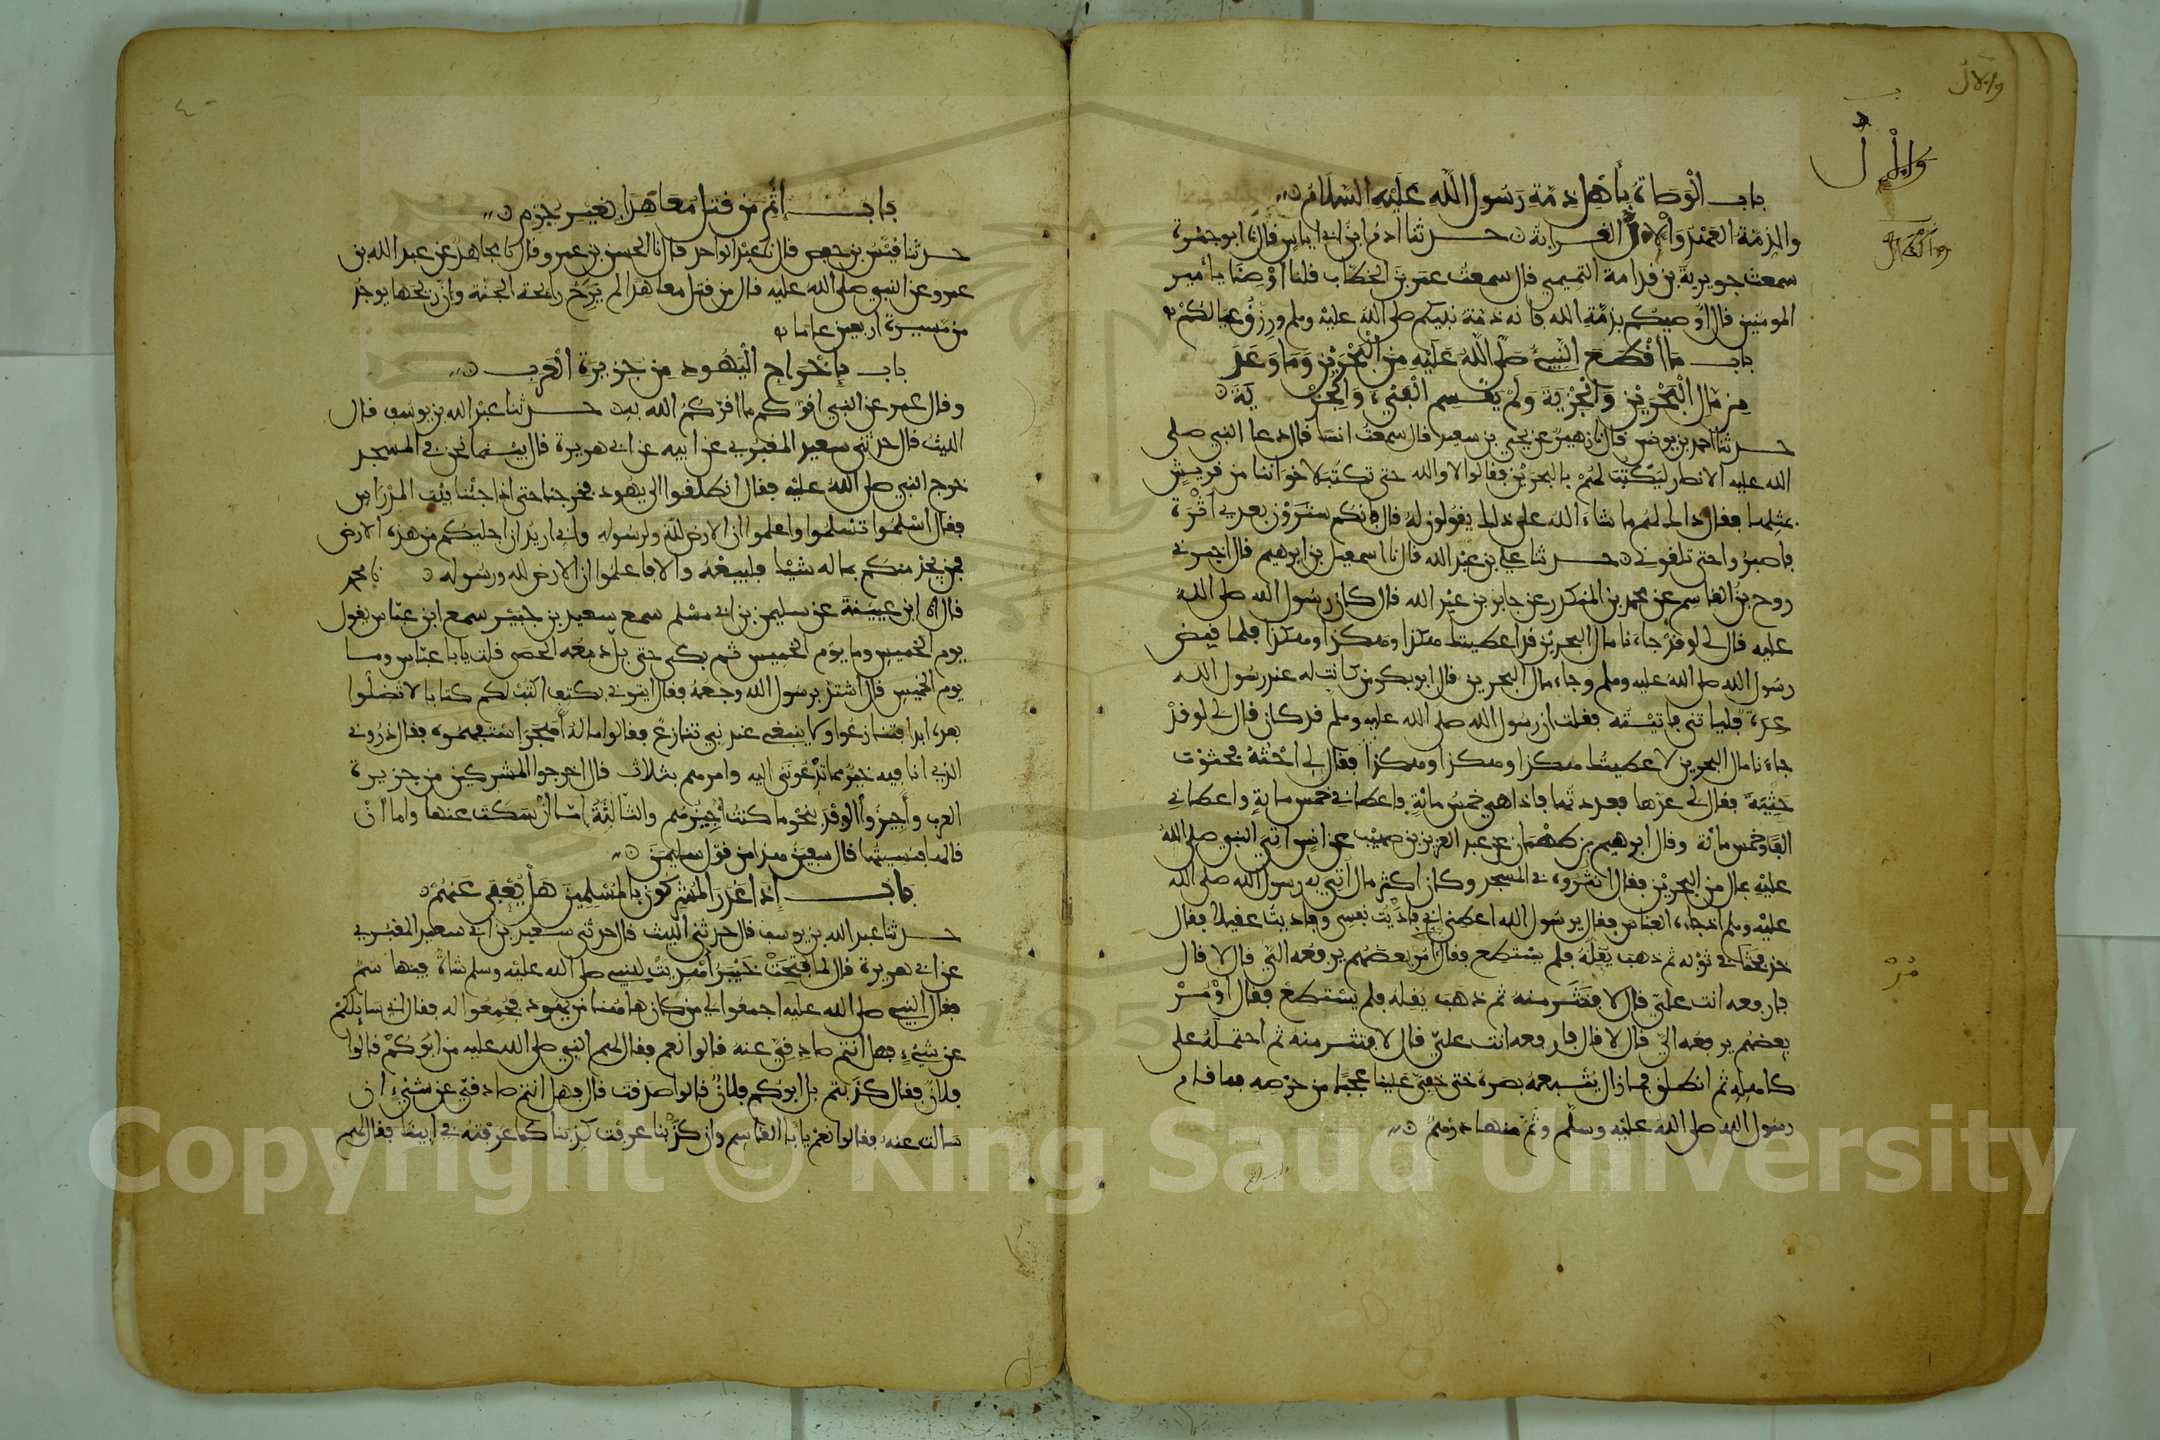 باب الوصاة بأهل ذمة رسول الله عليه السلام
والذمة العهد والإل القرابة حدثنا ادم ابن ابي اياس قال نا ابو جمرة
سمعت جويرية بن قدامة التميمي قال سمعت عمر بن الخطاب قلنا اوصنا يا أمير
المومنين قال أوصيكم بذمة الله فانه ذمة نبيكم صلى الله عليه وسلم ورزق عيالكم
باب ما أقطع النبي صلى الله عليه من البحرين وما وعد
من مال البحرين والجزية ولمن يقسم الفيء والجزية
حدثنا احمد بن يونس قال نا زهير عن يحيى بن سعيد قال سمعت انسا قال دعا النبي صلى
الله عليه الانصار ليكتب لهم بالبحرين فقالوا لا والله حتى تكتب لاخواننا من قريش
بمثلها فقال ذاك لهم ما شاء الله على ذلك يقولون له قال فإنكم سترون بعدي أثرة
فاصبروا حتى تلقوني حدثنا علي بن عبد الله قال نا اسمعيل بن ابرهيم قال اخبرني
روح بن القاسم عن محمد بن المنكدر عن جابر بن عبد الله قال كان رسول الله صلى الله
عليه قال لي لو قد جاءنا مال البحرين قد اعطيتك هكذا وهكذا وهكذا فلما قبض
رسول الله صلى الله عليه وسلم وجاء مال البحرين قال ابو بكر من كانت له عند رسول الله
عدة فلياتني فاتيته فقلت ان رسول الله صلى الله عليه وسلم قد كان قال لي لو قد
جاءنا مال البحرين لاعطيتك هكذا وهكذا وهكذا فقال لي احثه فحثوت
حثية فقال لي عدها فعددتها فاذا هي خمس مائة فاعطاني خمس ماية واعطاني
الفا وخمس مائة وقال ابرهيم بن طهمان عن عبد العزيز بن صهيب عن انس اتي النبي صلى الله
عليه بمال من البحرين فقال انثروه في المسجد وكان اكثر مال أتي به رسول الله صلى الله
عليه وسلم اذ جاءه العباس فقال يرسول الله اعطني اني فاديت نفسي وفاديت عقيلا فقال
خذ فحثا في ثوبه ثم ذهب يقله فلم يستطع فقال أمر بعضهم يرفعه الي قال لا قال
فارفعه انت علي قال لا فنثر منه ثم ذهب يقله فلم يستطع فقال أومر
بعضهم يرفعه الي قال لا قال فارفعه انت علي قال لا فنثر منه ثم احتمله على
كاهله ثم انطلق فما زال يتبعه بصره حتى خفي علينا عجبا من حرصه فما قام
رسول الله صلى الله عليه وسلم وثم منها درهم
باب إثم من قتل معاهدا بغير جرم
حدثنا قيس بن حفص قال نا عبد الواحد قال نا الحسن بن عمرو قال نا مجاهد عن عبد الله بن
عمرو عن النبي صلى الله عليه قال من قتل معاهدا لم يرح رائحة الجنة وان ريحها يوجد
من مسيرة اربعين عاما
باب بإخراج اليهود من جزيرة العرب
وقال عمر عن النبي اقركم ما اقركم الله به حدثنا عبد الله بن يوسف قال
الليث قال حدثني سعيد المقبري عن ابيه عن ابي هريرة قال بينما نحن في المسجد
خرج النبي صلى الله عليه فقال انطلقوا الى يهود فخرجنا حتى اذا جئنا بيت المدراس
فقال اسلموا تسلموا واعلموا ان الارض لله ولرسوله واني اريد ان اجليكم من هذه الارض
فمن يجد منكم بماله شيئا فليبعه والا فاعلموا ان الارض لله ورسوله نا محمد
قال نا ابن عيينة عن سليمن بن ابي مسلم سمع سعيد بن جبير سمع ابن عباس يقول
يوم الخميس وما يوم الخميس ثم بكى حتى بل دمعه الحصى قلت يابا عباس وما
يوم الخميس قال اشتد برسول الله وجعه فقال ايتوني بكتف اكتب لكم كتابا لا تضلوا
بعده ابدا فتنازعوا ولا ينبغي عند نبي تنازع فقالوا ماله أهجر استفهموه فقال ذروني
الذي انا فيه خير مما تدعونني اليه وامرهم بثلاث قال اخرجوا المشركين من جزيرة
العرب وأجيزوا الوفد بنحو ما كنت أجيزهم والثالثة إما أن سكت عنها واما أن
قالها فنسيتها قال سفين هذا من قول سليمن
باب إذا غدر المشركون بالمسلمين هل يعفى عنهم
حدثنا عبد الله بن يوسف قال حدثني الليث قال حدثني سعيد بن ابي سعيد المقبري
عن ابي هريرة قال لما فتحت خيبر أهديت للنبي صلى الله عليه وسلم شاة فيها سم
فقال النبي صلى الله عليه اجمعوا لي من كان هاهنا من يهود فجمعوا له فقال اني سايلكم
عن شيء فهل انتم صادقي عنه قالوا نعم فقال لهم النبي صلى الله عليه من ابوكم قالوا
فلان فقال كذبتم بل ابوكم فلان قالوا صدقت قال فهل انتم صادقي عن شيء ان
سالت عنه فقالوا نعم يا با القاسم وان كذبنا عرفت كذبنا كما عرفته في ابينا فقال لهم
Copyright © King Saud University